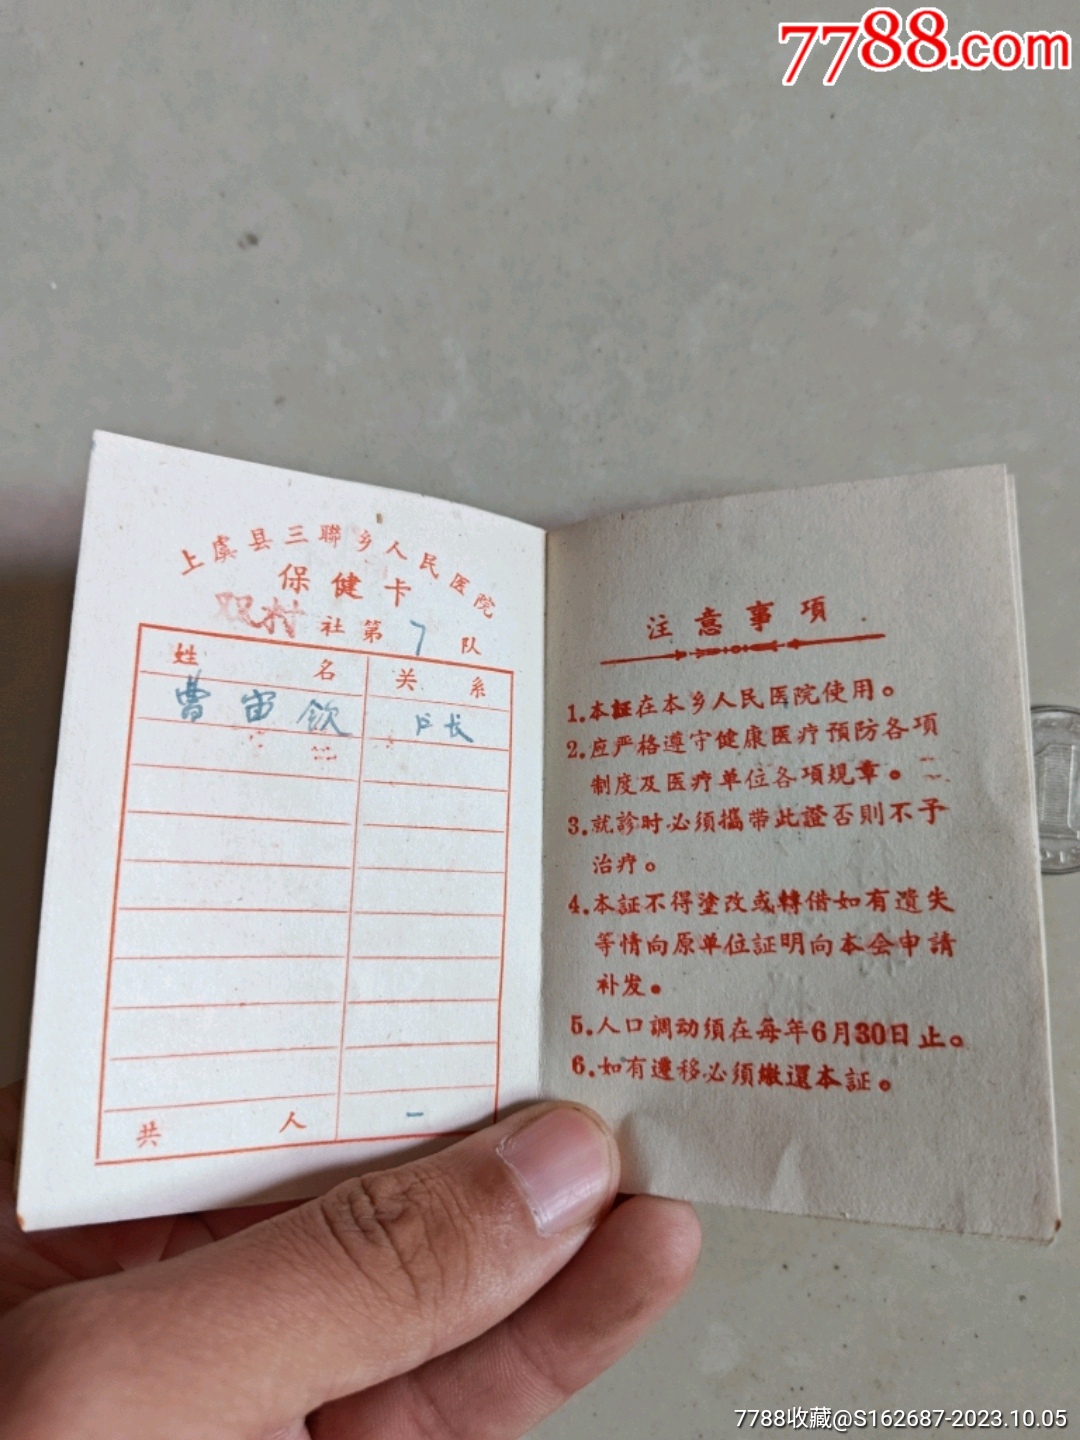 7788.com
上虞县三聯乡人民医院
保健卡
双村 社第 7 队
姓名 关系
曹宙欽 户长
共 人 一
注意事項
1.本証在本乡人民医院使用。
2.应严格遵守健康医疗預防各項
制度及医疗单位各項規章。
3.就診时必须攜带此證否則不予
治疗。
4.本証不得塗改或轉借如有遺失
等情向原单位証明向本会申請
补发。
5.人口調动須在每年6月30日止。
6.如有遷移必须繳還本証。
7788收藏@S162687-2023.10.05